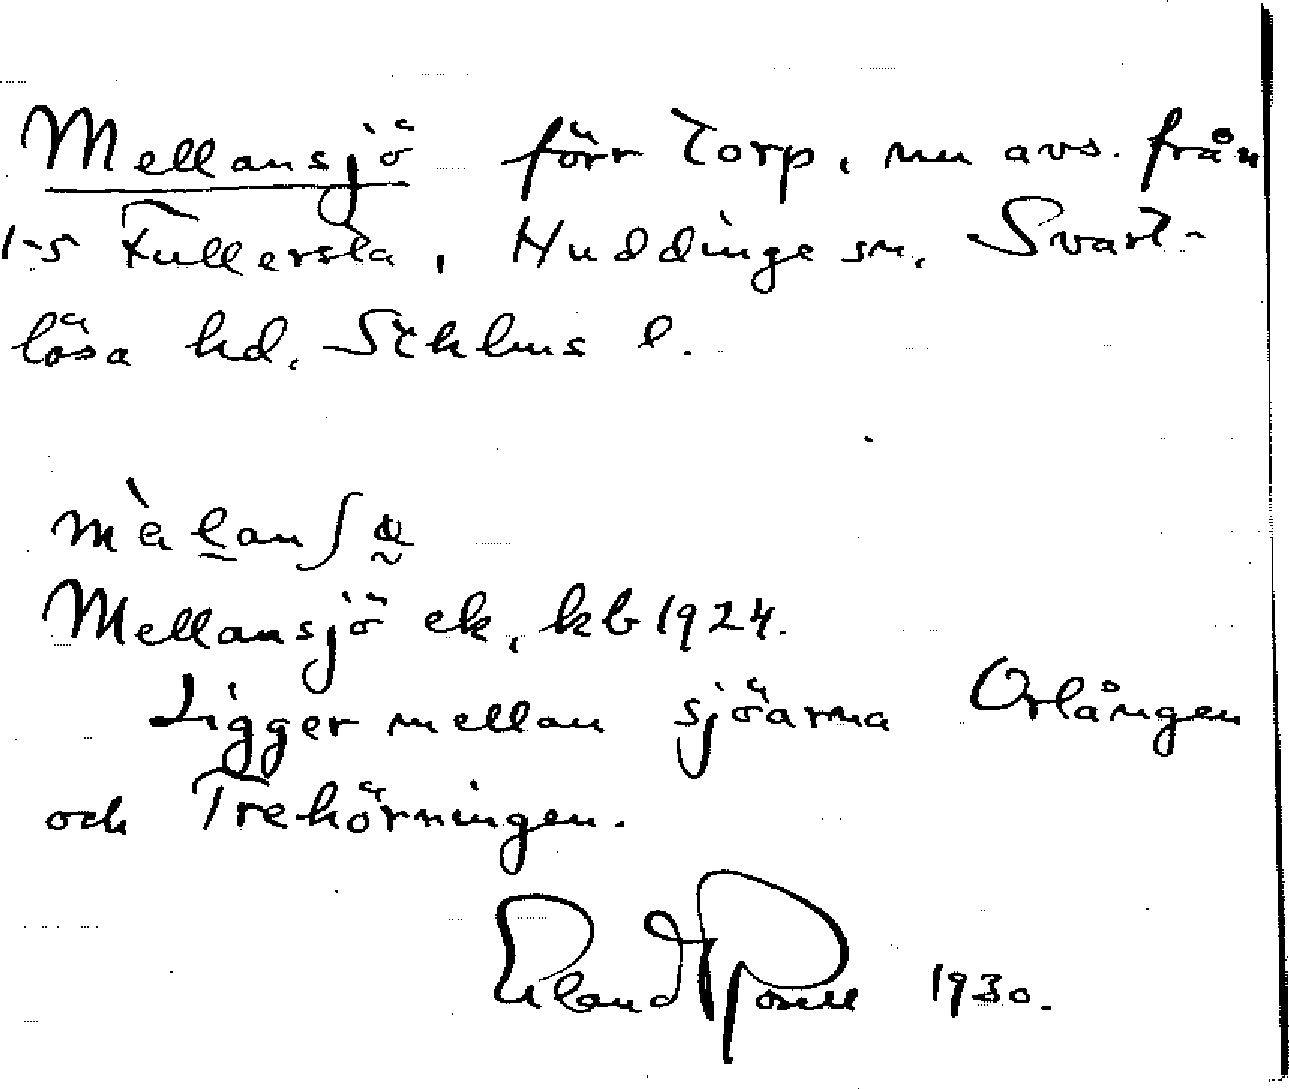 Mellansjö förr Torp, nu avs. från
1-5 Fullersta, Huddinge sn, Svart-
lösa hd, Sthlms l.
Mellansjö ek, kb 1924.
Ligger mellan sjöarna Orlången
och Trehörningen.
Erland Rosell 1930.